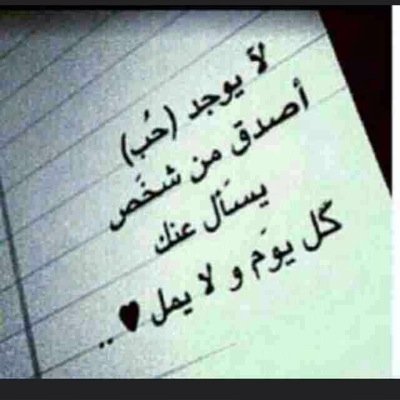 لآ يوجد (حُب)
أصدق من شخَص
يسَأل عنك
كَل يوَم و لا يمل ♥ ..